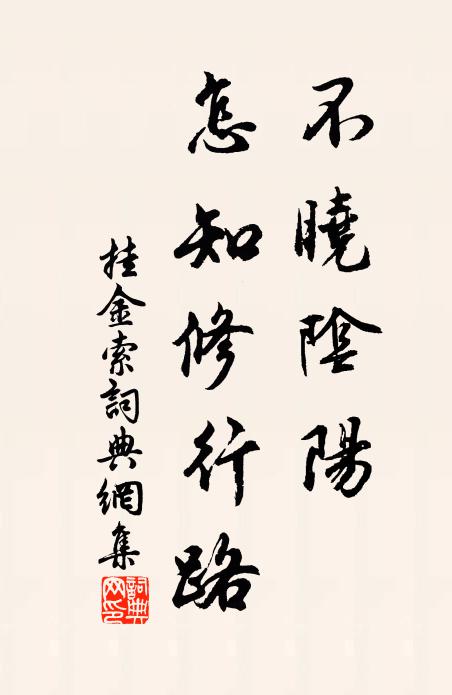 不曉陰陽
怎知修行路
挂金索詞典網集
詞典網印